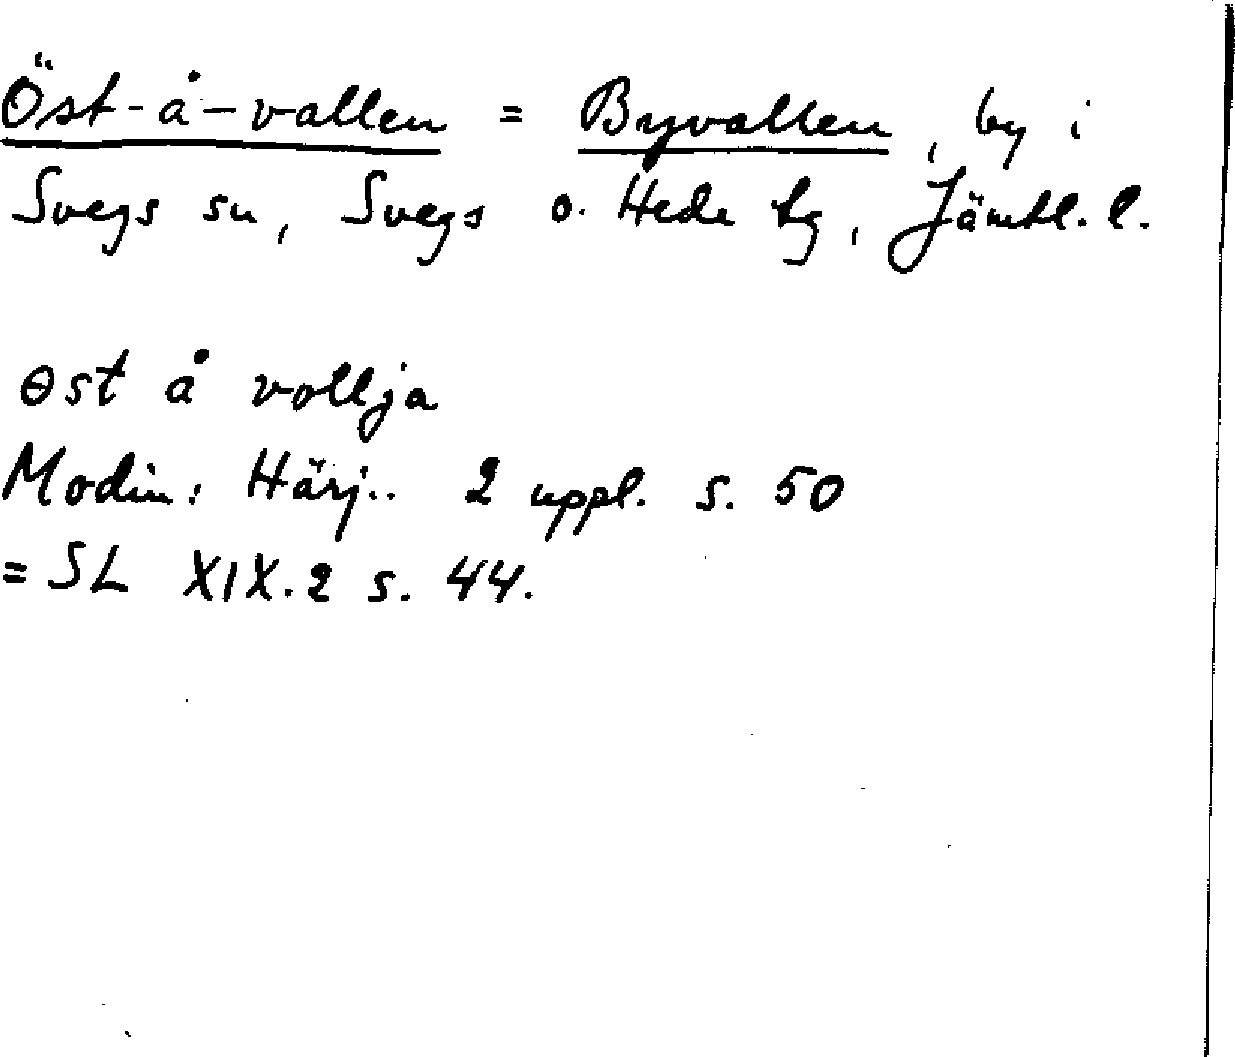 Öst-å-vallen = Byvallen, by i
Svegs sn, Svegs o. Hede tg, Jämtl. l.
ɵst å vollja
Modin: Härj.. 2 uppl. s. 50
= SL XIX.2 s. 44.